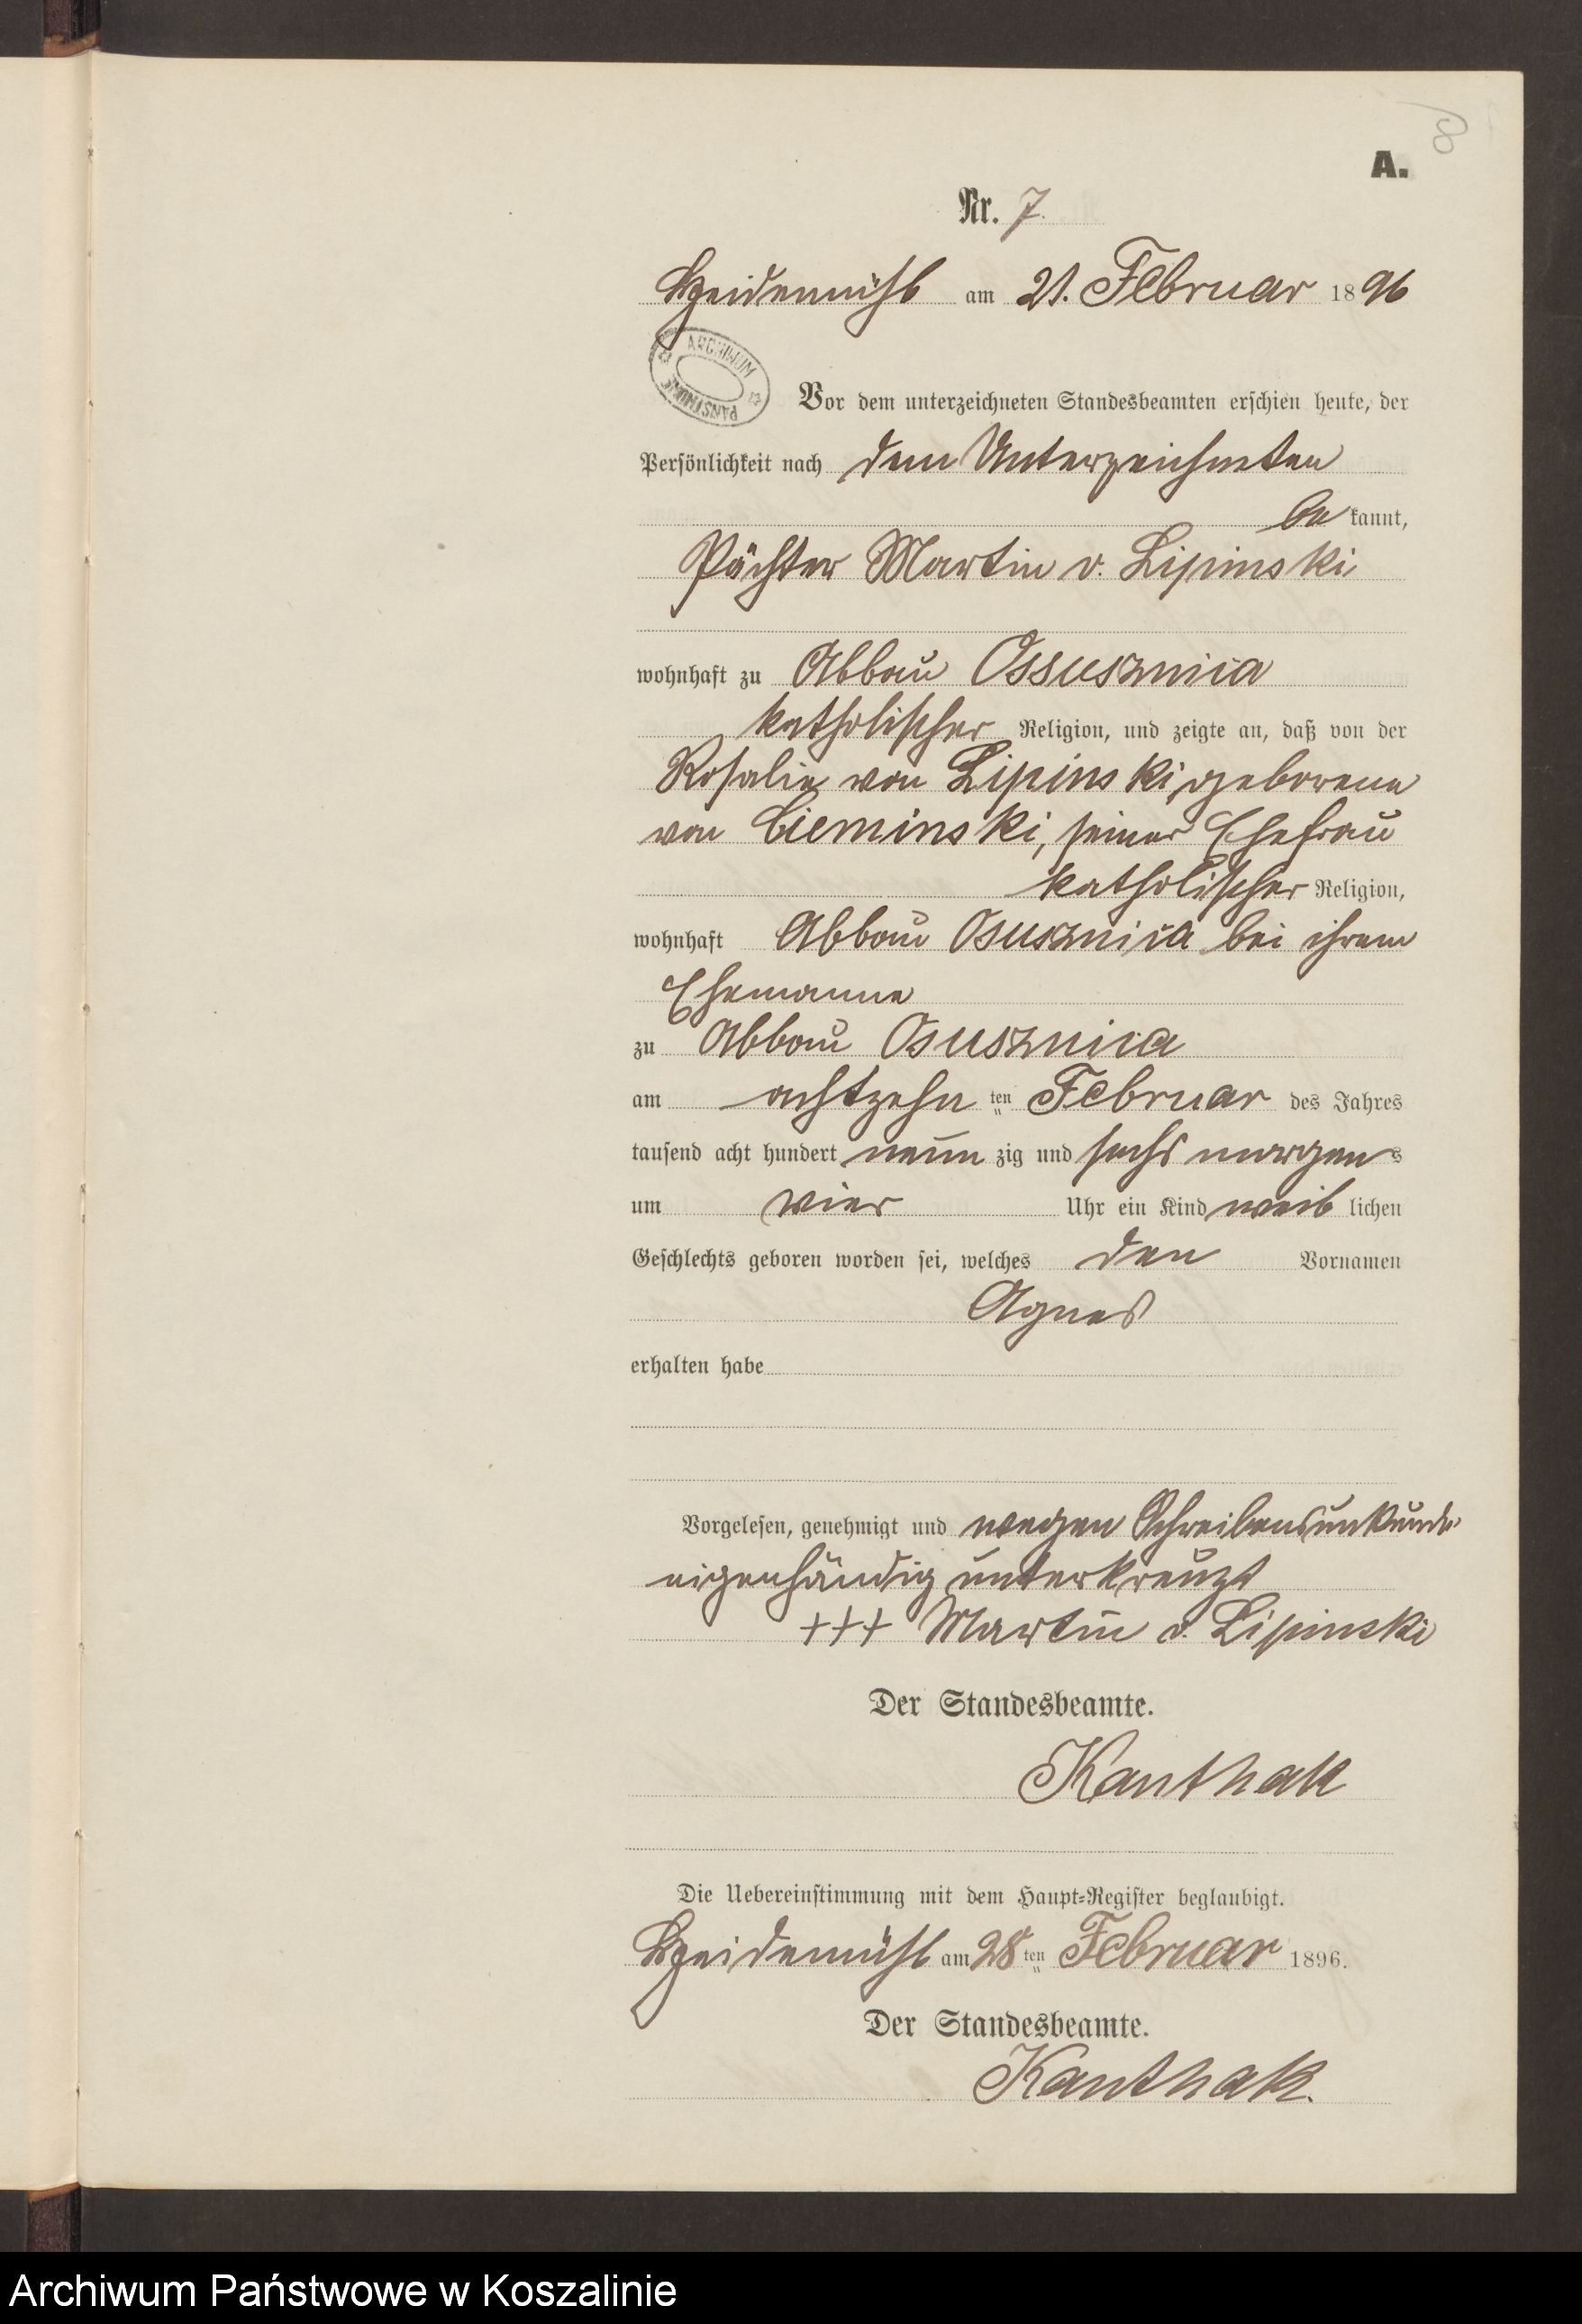 8
A.
Nr. 7.
Heidemühl am 21. Februar 1896
ARCHIWUM PAŃSTWOWE
Vor dem unterzeichneten Standesbeamten erschien heute, der
Persönlichkeit nach dem Unterzeichneten
be kannt,
Pächter Martin v. Lipinski
wohnhaft zu Abbau Ossusznica
katholischer Religion, und zeigte an, daß von der
Rosalie von Lipinski, geborene
von Cieminski, seiner Ehefrau
katholischer Religion,
wohnhaft Abbau Osusznica bei ihrem
Ehemanne
zu Abbau Osusznica
am achtzehn ten Februar des Jahres
tausend acht hundert neun zig und sechs morgens
um vier Uhr ein Kind weib lichen
Geschlechts geboren worden sei, welches den Vornamen
Agnes
erhalten habe
Vorgelesen, genehmigt und wegen Schreibensunkunde
eigenhändig unterkreuzt
+++ Martin v. Lipinski
Der Standesbeamte.
Kanthak
Die Uebereinstimmung mit dem Haupt-Register beglaubigt.
Heidemühl am 28 ten Februar 1896.
Der Standesbeamte.
Kanthak.
Archiwum Państwowe w Koszalinie